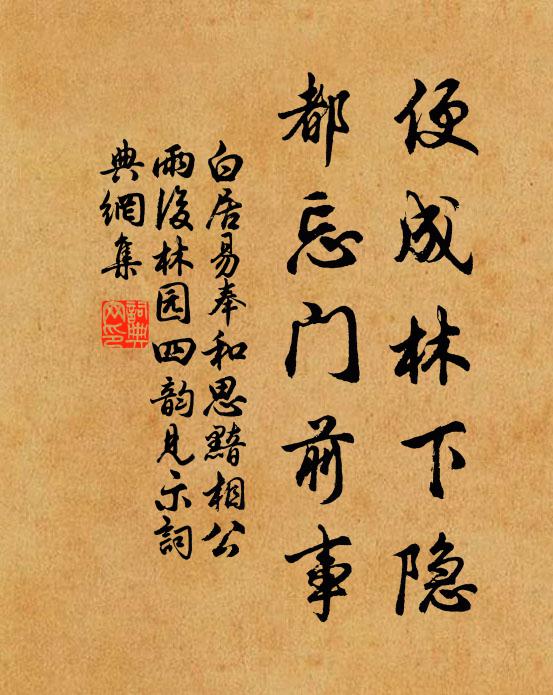 便成林下隐
都忘门前事
白居易奉和思黯相公
雨後林园四韵见示詞
典網集
詞典
网印